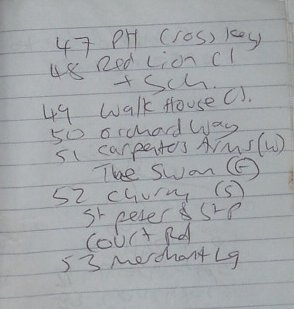 47 PH Cross Key
48 Red Lion Cl
+ Sch.
49 Walk House Cl.
50 orchard Way
51 carpenters Arms (W)
The Swan (E)
52 Church (S)
St peter & St P
Court Rd
53 Merchant Lg